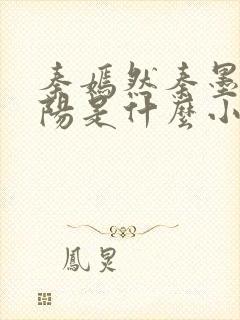 秦嫣然秦墨
陽是什麼小
鳳炅